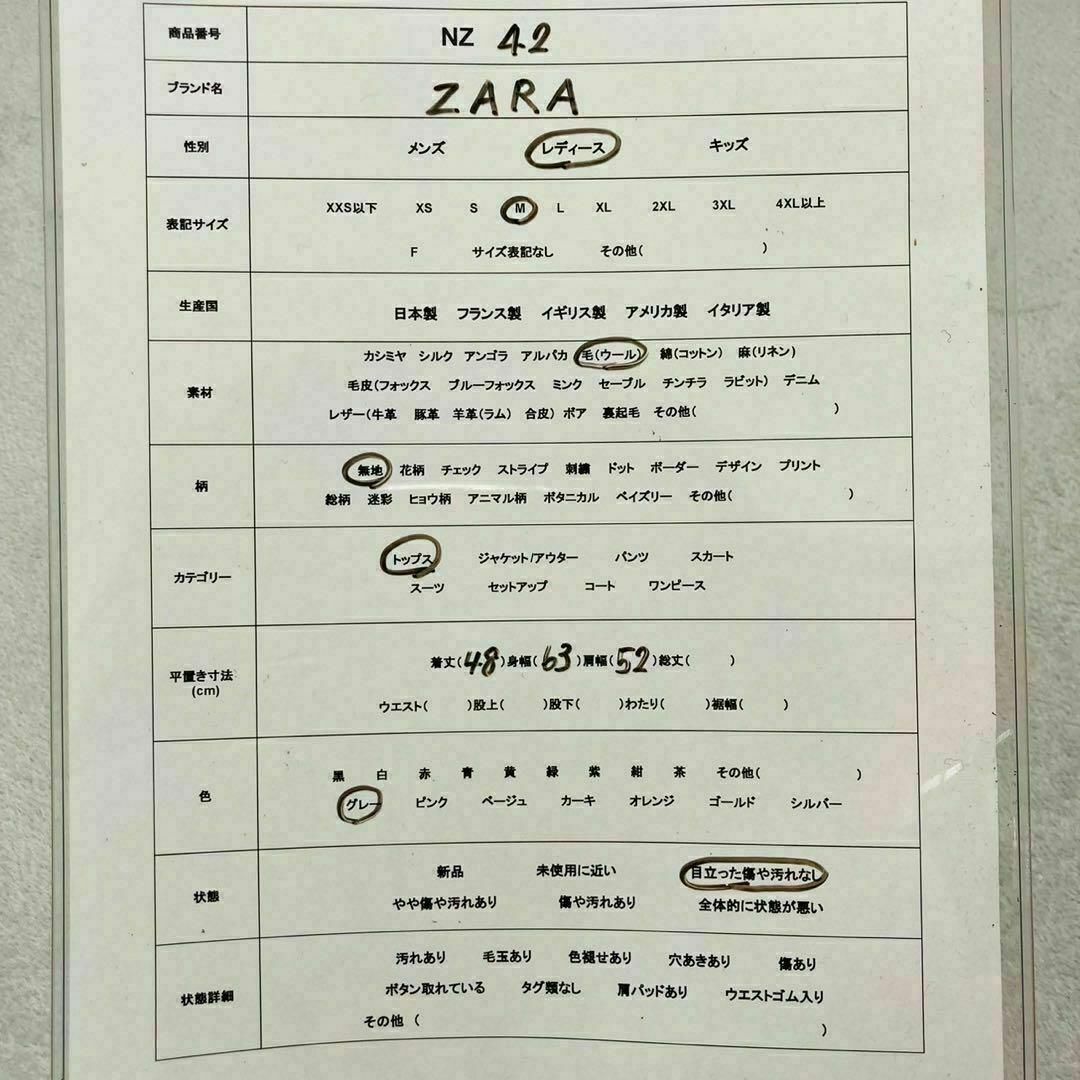 商品番号 NZ 42
ブランド名 ZARA
性別 メンズ レディース キッズ
表記サイズ
XXS以下 XS S M L XL 2XL 3XL 4XL以上
F サイズ表記なし その他( )
生産国 日本製 フランス製 イギリス製 アメリカ製 イタリア製
素材
カシミヤ シルク アンゴラ アルパカ 毛(ウール) 綿(コットン) 麻(リネン)
毛皮(フォックス ブルーフォックス ミンク セーブル チンチラ ラビット) デニム
レザー(牛革 豚革 羊革(ラム) 合皮) ボア 裏起毛 その他( )
柄
無地 花柄 チェック ストライプ 刺繍 ドット ボーダー デザイン プリント
総柄 迷彩 ヒョウ柄 アニマル柄 ボタニカル ペイズリー その他( )
カテゴリー
トップス ジャケット/アウター パンツ スカート
スーツ セットアップ コート ワンピース
平置き寸法
(cm)
着丈(48)身幅(63)肩幅(52)総丈( )
ウエスト( )股上( )股下( )わたり( )裾幅( )
色
黒 白 赤 青 黄 緑 紫 紺 茶 その他( )
グレー ピンク ベージュ カーキ オレンジ ゴールド シルバー
状態
新品 未使用に近い 目立った傷や汚れなし
やや傷や汚れあり 傷や汚れあり 全体的に状態が悪い
状態詳細
汚れあり 毛玉あり 色褪せあり 穴あきあり 傷あり
ボタン取れている タグ類なし 肩パッドあり ウエストゴム入り
その他 ( )